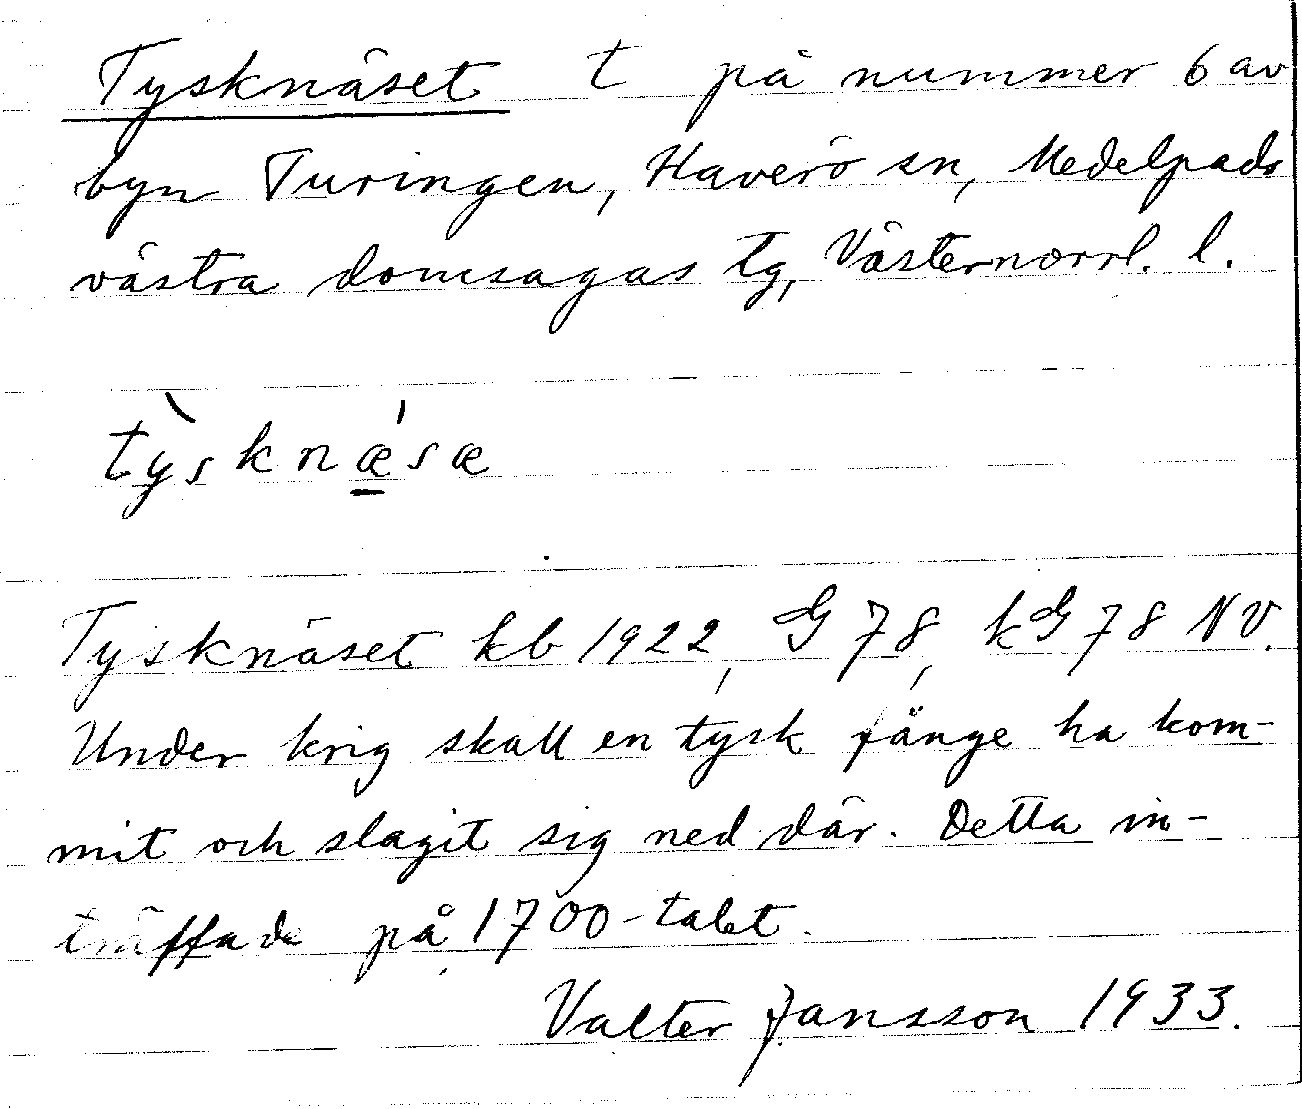 Tysknäset t på nummer 6 av
byn Turingen, Haverö sn, Medelpads
västra domsagas tg, Västernorrl. l.
tỳsknǽ̠sæ
Tysknäset kb 1922, G 78, kG 78 NV.
Under krig skall en tysk fånge ha kom-
mit och slagit sig ned där. Detta in-
träffade på 1700-talet.
Valter Jansson 1933.